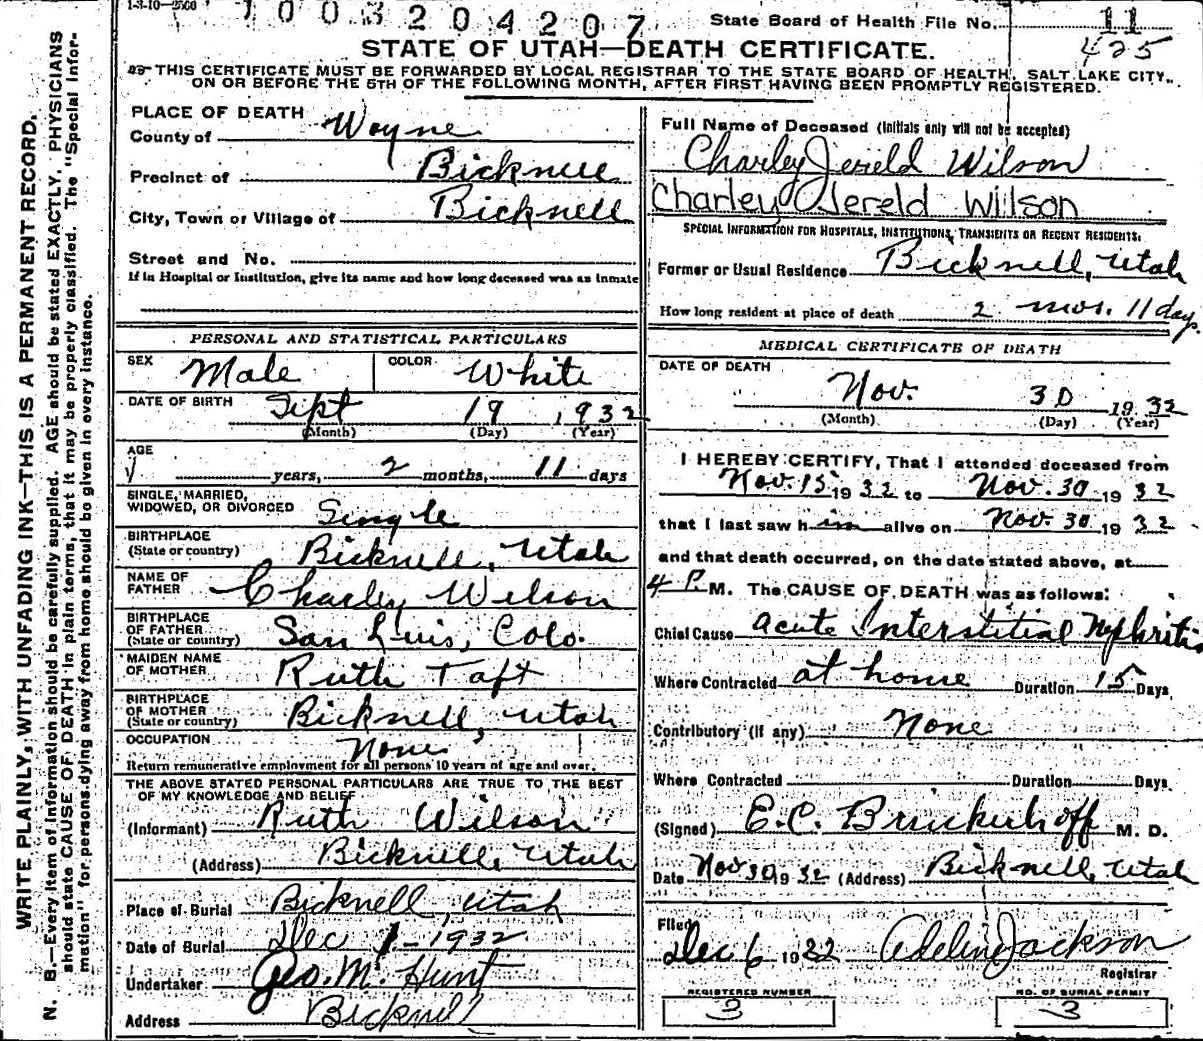 1-3-10-2500
1003204207
State Board of Health File No. 11
425
STATE OF UTAH—DEATH CERTIFICATE.
THIS CERTIFICATE MUST BE FORWARDED BY LOCAL REGISTRAR TO THE STATE BOARD OF HEALTH, SALT LAKE CITY,
ON OR BEFORE THE 5TH OF THE FOLLOWING MONTH, AFTER FIRST HAVING BEEN PROMPTLY REGISTERED.
WRITE PLAINLY, WITH UNFADING INK—THIS IS A PERMANENT RECORD.
N. B.—Every item of information should be carefully supplied. AGE should be stated EXACTLY. PHYSICIANS
should state CAUSE OF DEATH in plain terms, that it may be properly classified. The "Special Infor-
mation" for persons dying away from home should be given in every instance.
PLACE OF DEATH
County of Wayne
Precinct of Bicknell
City, Town or Village of Bicknell
Street and No.
If in Hospital or Institution, give its name and how long deceased was an inmate
PERSONAL AND STATISTICAL PARTICULARS
SEX Male COLOR White
DATE OF BIRTH Sept 19, 1932
(Month) (Day) (Year)
AGE
years, 2 months, 11 days
SINGLE, MARRIED,
WIDOWED, OR DIVORCED Single
BIRTHPLACE
(State or country) Bicknell, Utah
NAME OF
FATHER Charley Wilson
BIRTHPLACE
OF FATHER
(State or country) San Luis, Colo.
MAIDEN NAME
OF MOTHER Ruth Taft
BIRTHPLACE
OF MOTHER
(State or country) Bicknell, Utah
OCCUPATION None
Return remunerative employment for all persons 10 years of age and over.
THE ABOVE STATED PERSONAL PARTICULARS ARE TRUE TO THE BEST
OF MY KNOWLEDGE AND BELIEF
(Informant) Ruth Wilson
(Address) Bicknell, Utah
Place of Burial Bicknell, Utah
Date of Burial Dec 1-1932
Undertaker Geo. M. Hunt
Address Bicknell
Full Name of Deceased (Initials only will not be accepted)
Charley Jereld Wilson
Charley Jereld Wilson
SPECIAL INFORMATION FOR HOSPITALS, INSTITUTIONS, TRANSIENTS OR RECENT RESIDENTS.
Former or Usual Residence Bicknell, Utah
How long resident at place of death 2 mos. 11 days
MEDICAL CERTIFICATE OF DEATH
DATE OF DEATH
Nov. 30 1932
(Month) (Day) (Year)
I HEREBY CERTIFY, That I attended deceased from
Nov. 15 1932 to Nov. 30 1932
that I last saw him alive on Nov. 30 1932
and that death occurred, on the date stated above, at
4 P. M. The CAUSE OF DEATH was as follows:
Chief Cause Acute Interstitial Nyhritis
Where Contracted at home Duration 15 Days
Contributory (if any) None
Where Contracted Duration Days
(Signed) E.C. Bruckerhoff M. D.
Date Nov 30 1932 (Address) Bicknell, Utah
Filed
Dec 6 1932 Adeline Jackson
Registrar
REGISTERED NUMBER
3
NO. OF BURIAL PERMIT
3